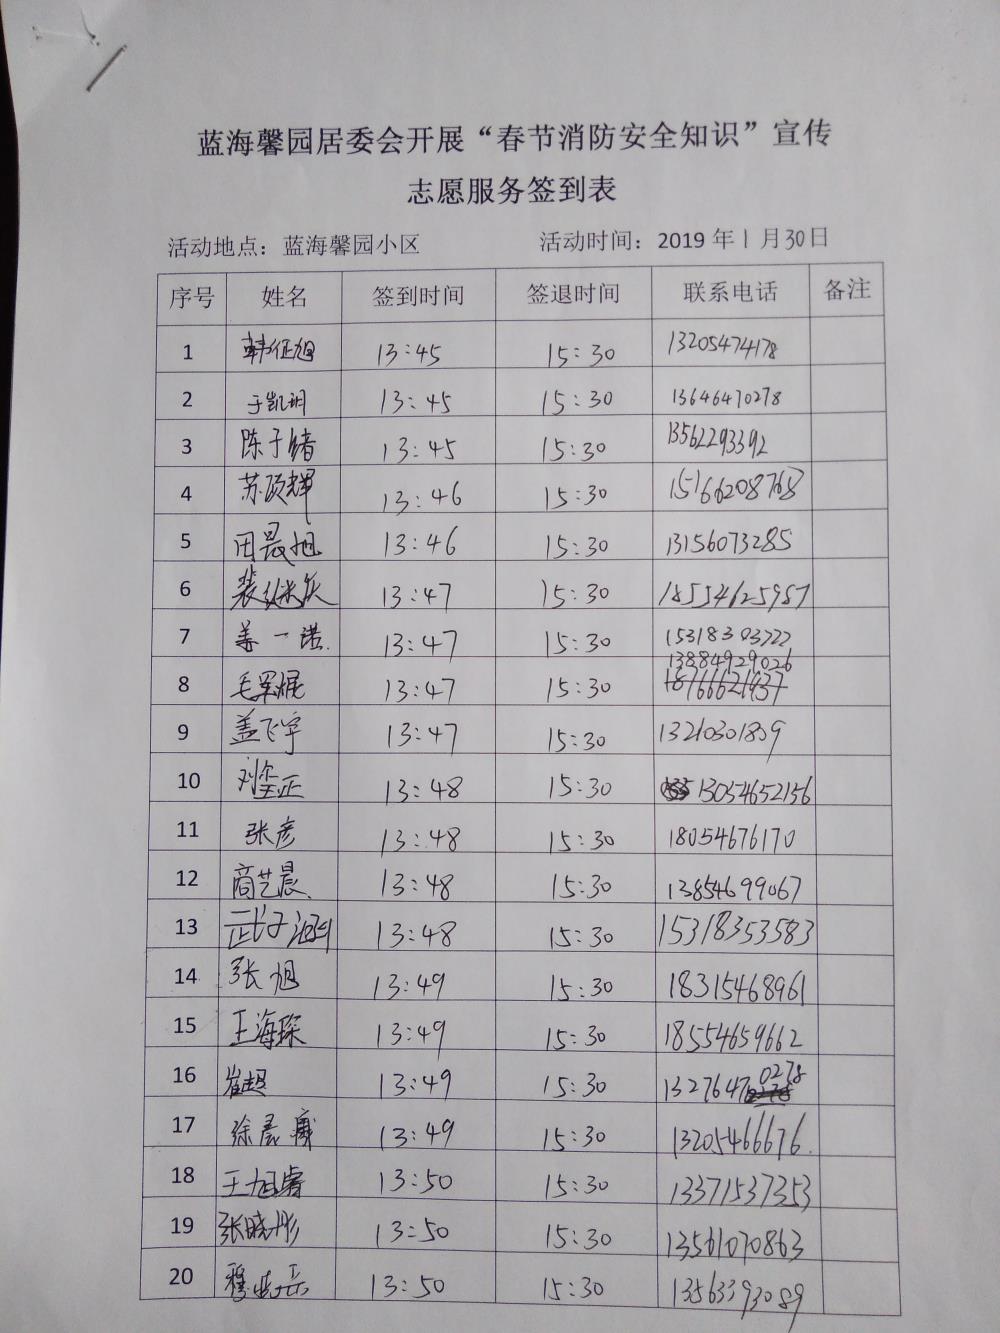 蓝海馨园居委会开展“春节消防安全知识”宣传
志愿服务签到表
活动地点：蓝海馨园小区 活动时间：2019年1月30日
序号 姓名 签到时间 签退时间 联系电话 备注
1 韩征旭 13:45 15:30 13205474178
2 于凯玥 13:45 15:30 13646470278
3 陈子绪 13:45 15:30 13562293392
4 苏硕辉 13:46 15:30 15166208768
5 田晨旭 13:46 15:30 13156073285
6 13:47 15:30 18554625957
7 姜一诺 13:47 15:30 15318303722
13884929026
8 毛军焜 13:47 15:30 18766621437
9 盖飞宇 13:47 15:30 13210301809
10 刘奎正 13:48 15:30 13054652156
11 张彦 13:48 15:30 18054676170
12 商艺晨 13:48 15:30 13854699067
13 武子涵 13:48 15:30 15318353583
14 张旭 13:49 15:30 18315468961
15 王海琛 13:49 15:30 18554659662
16 崔超 13:49 15:30 13276470278
17 徐晨曦 13:49 15:30 13205466676
18 王旭睿 13:50 15:30 13371537353
19 张晓彤 13:50 15:30 13561070863
20 13:50 15:30 13563393089